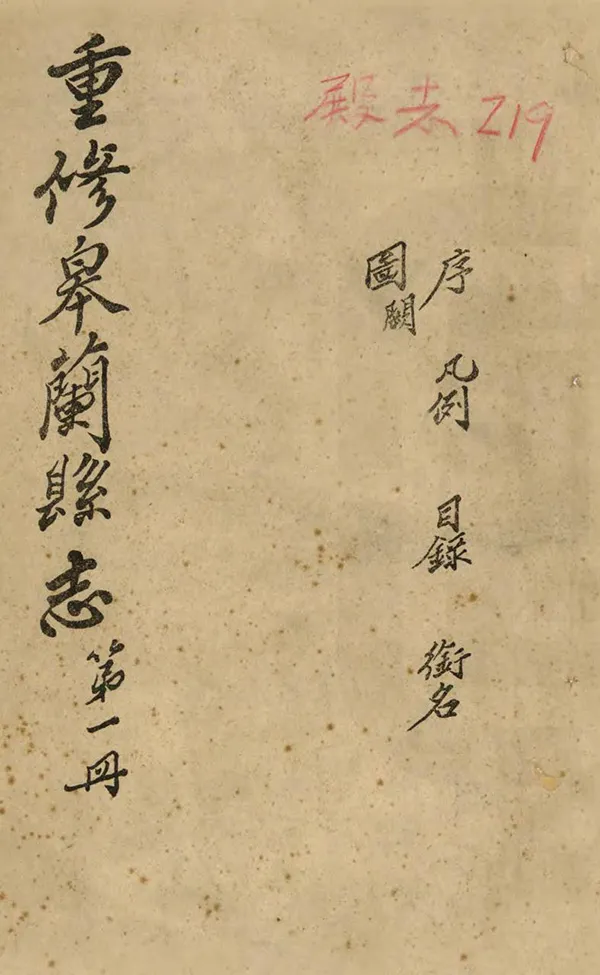 殿志219
序 凡例 目錄 銜名
圖闕
重修皋蘭縣志第一冊